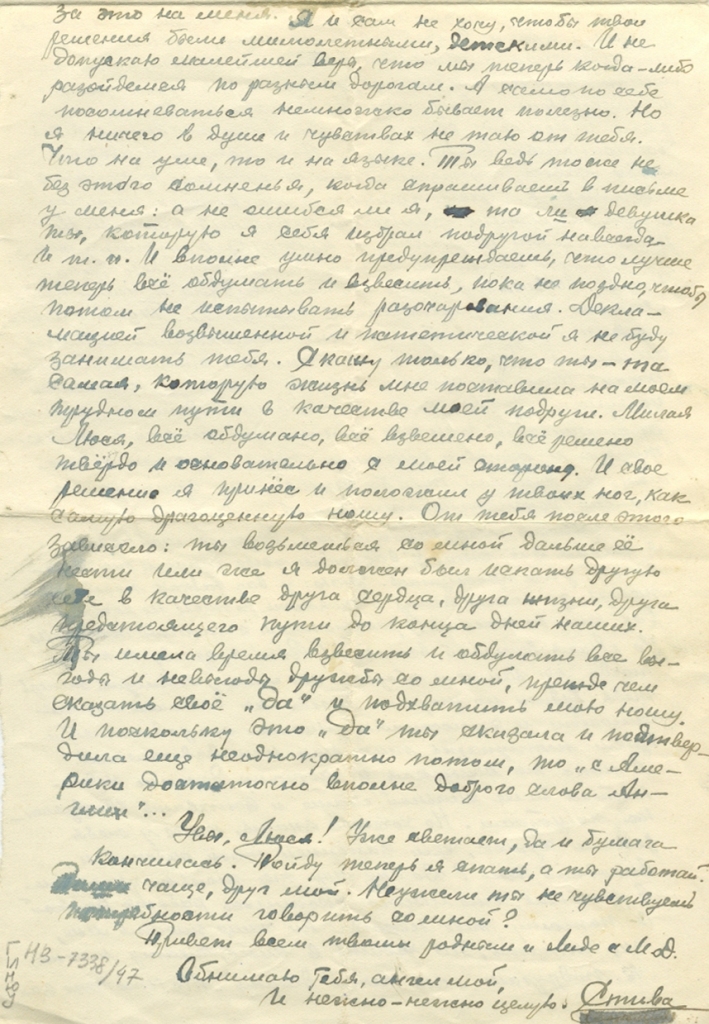 за это на меня. Я и сам не хочу, чтобы твои
решения были мимолетными, детскими. И не
допускаю малейшей веры, что мы теперь когда-либо
разойдемся по разным дорогам. А само по себе
посомневаться немножко бывает полезно. Но
я ничего в душе и чувствах не таю от тебя.
Что на уме, то и на языке. Ты ведь тоже не
без этого сомненья, когда спрашиваешь в письме
у меня: а не ошибся ли я, та ли девушка
ты, которую я себя избрал подругой навсегда
и т. п. И вполне умно предупреждаешь, что лучше
теперь всё обдумать и взвесить, пока не поздно, чтобы
потом не испытывать разочарования. Декла-
мацией возвышенной и патетической я не буду
занимать тебя. Скажу только, что ты – та
самая, которую жизнь мне поставила на моем
трудном пути в качестве моей подруги. Милая
Люся, всё обдумано, всё взвешено, всё решено
твёрдо и основательно с моей стороны. И свое
решение я принёс и положил у твоих ног, как
самую драгоценную ношу. От тебя после этого
зависело: ты возьмешься со мной дальше её
нести или же я должен был искать другую
в качестве друга сердца, друга жизни, друга
предстоящего пути до конца дней наших.
Ты имела время взвесить и обдумать все вы-
годы и невыгоды дружбы со мной, прежде чем
сказать своё „Да" и подхватить мою ношу.
И поскольку это „Да" ты сказала и подтвер-
дила еще неоднократно потом, то „с Аме-
рики достаточно вполне доброго слова Ан-
глии"...
Увы, Люся! Уже светает, да и бумага
кончилась. Пойду теперь я спать, а ты работай.
Пиши чаще, друг мой. Неужели ты не чувствуешь
потребности говорить со мной?
Привет всем твоим родным и Лиде с М.Д.
Обнимаю тебя, ангел мой,
и нежно-нежно целую. Стива
НВ-7338/47